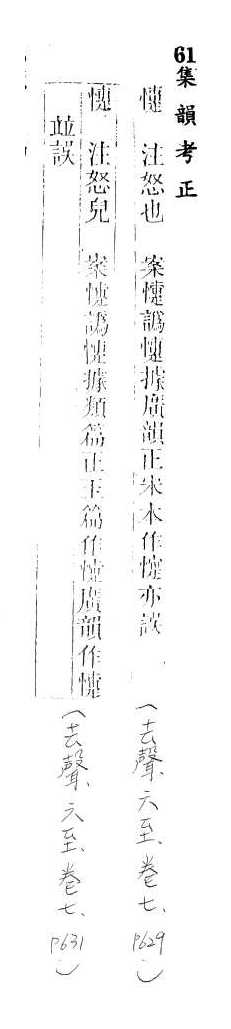 61集韻考正
懥 注怒也 案懥譌懥據廣韻正宋本作懥亦誤 (去聲、六至、卷七、P629)
懥 注怒兒 案懥譌懥據類篇正玉篇作懥廣韻作懥 (去聲、六至、卷七、P631)
並誤